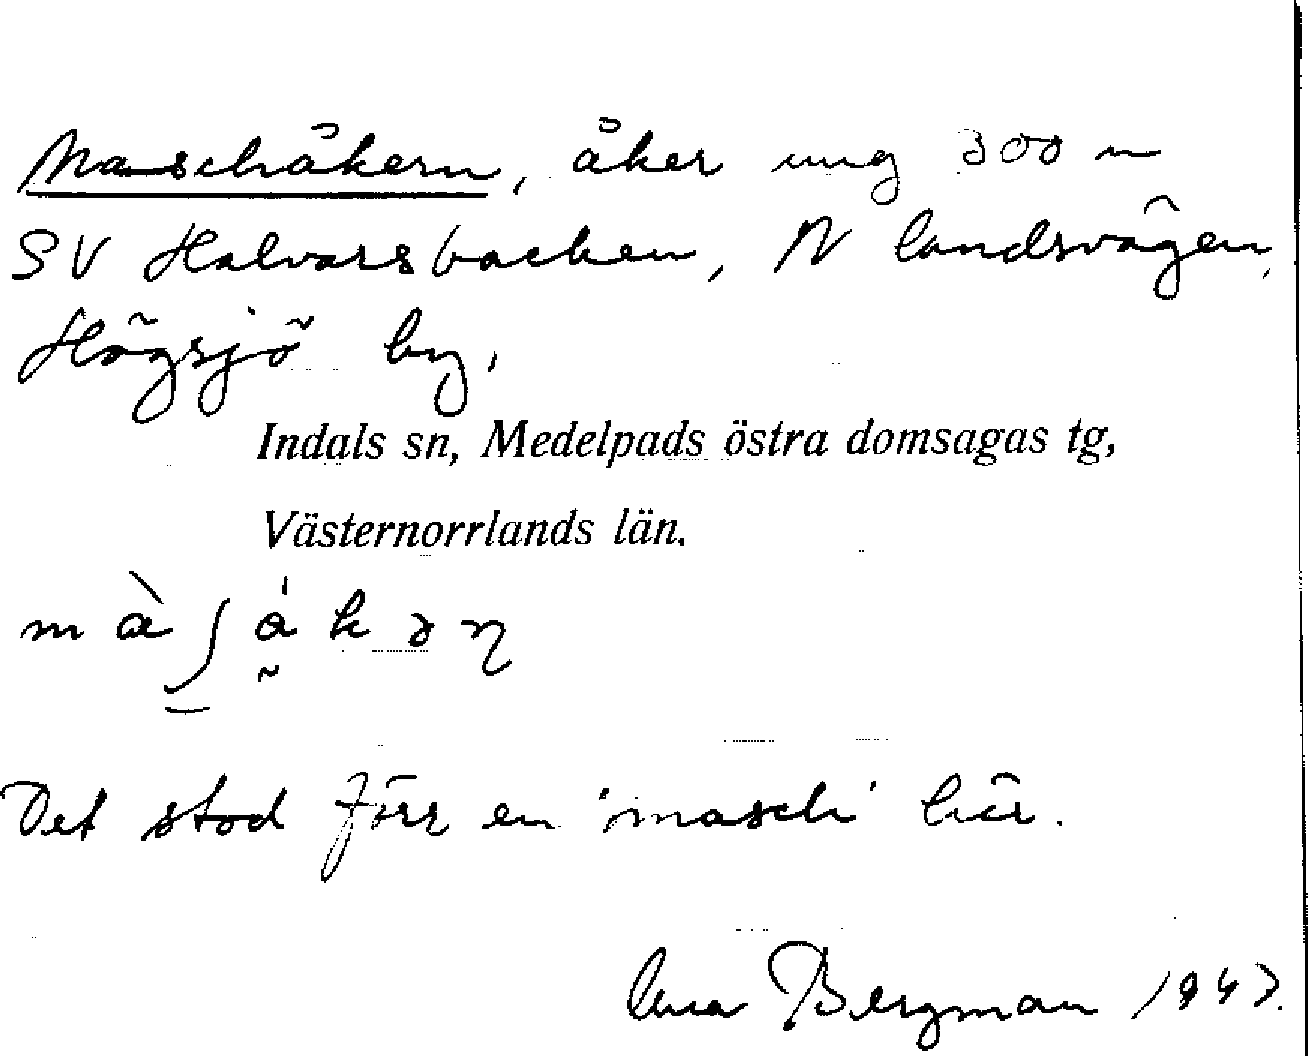 Maschåkern, åker ung 300 m
SV Halvarsbacken, N landsvägen,
Högsjö by,
Indals sn, Medelpads östra domsagas tg,
Västernorrlands län.
Det stod förr en 'masch' här.
Bergman 1947.